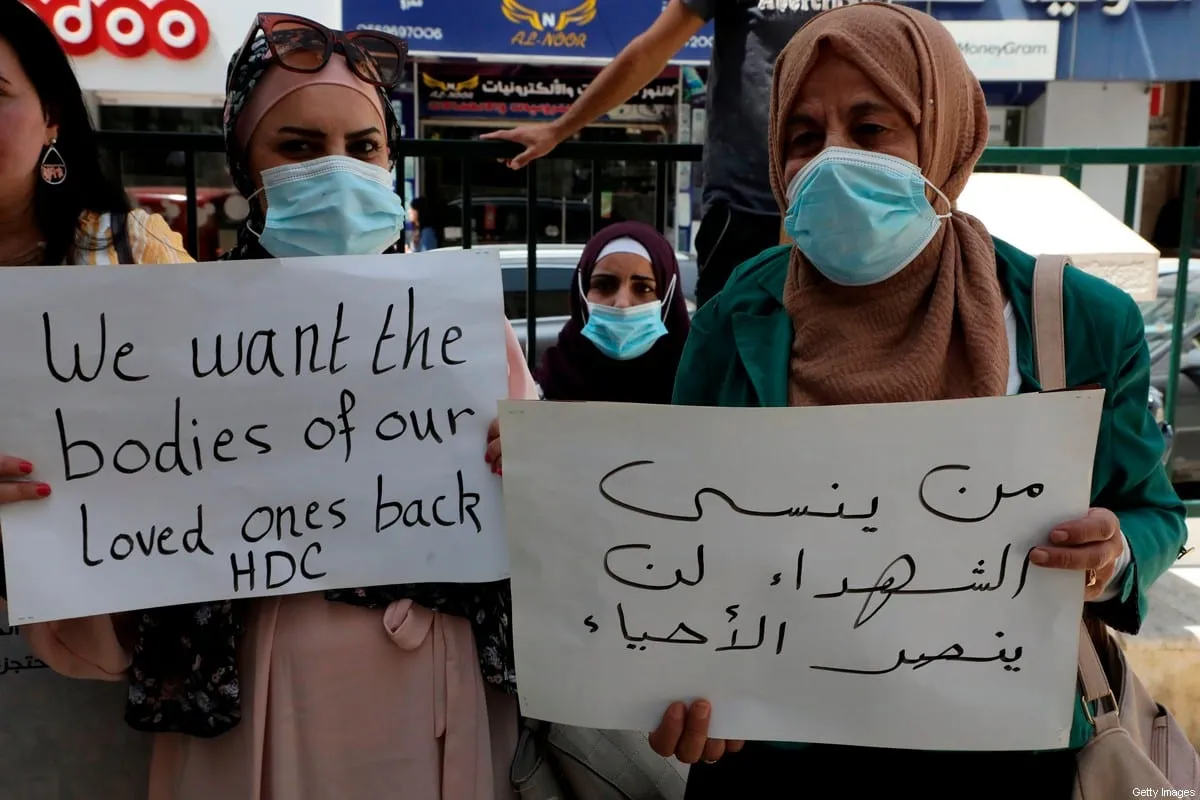 doo
N
AL-NOOR
MoneyGram
We want the
bodies of our
loved ones back
HDC
من ينسى
الشهداء لن
ينصر الأحياء
Getty Images